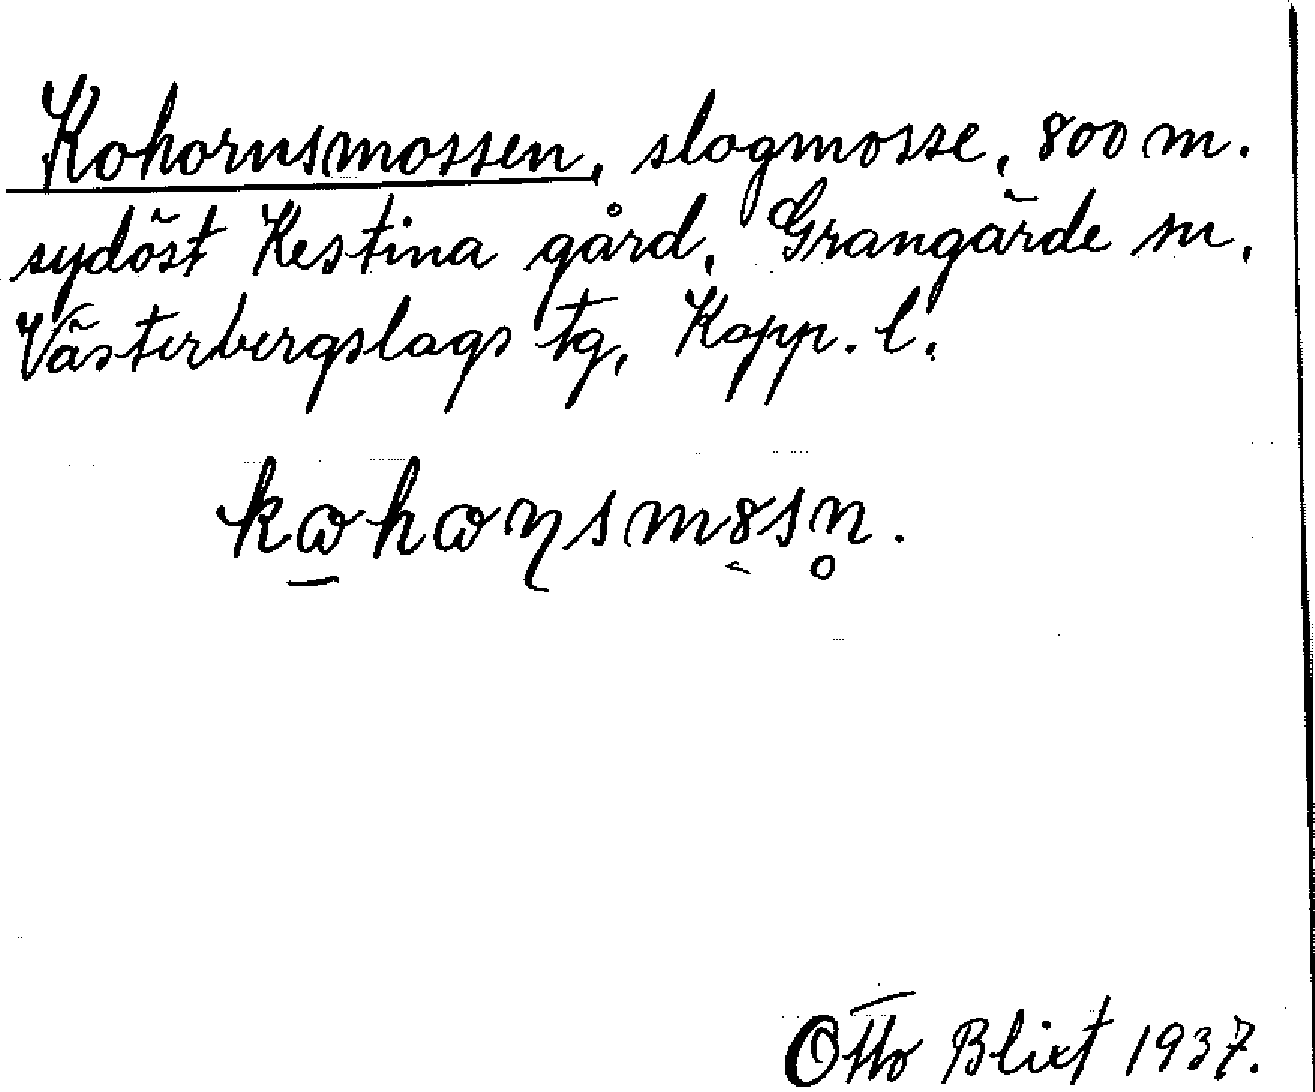 Kohornsmossen, slogmosse, 800 m.
sydöst Kestina gård, Grangärde sn,
Västerbergslags tg, Kopp. l.
kɷhɷɳsm8sn̥.
Otto Blixt 1937.